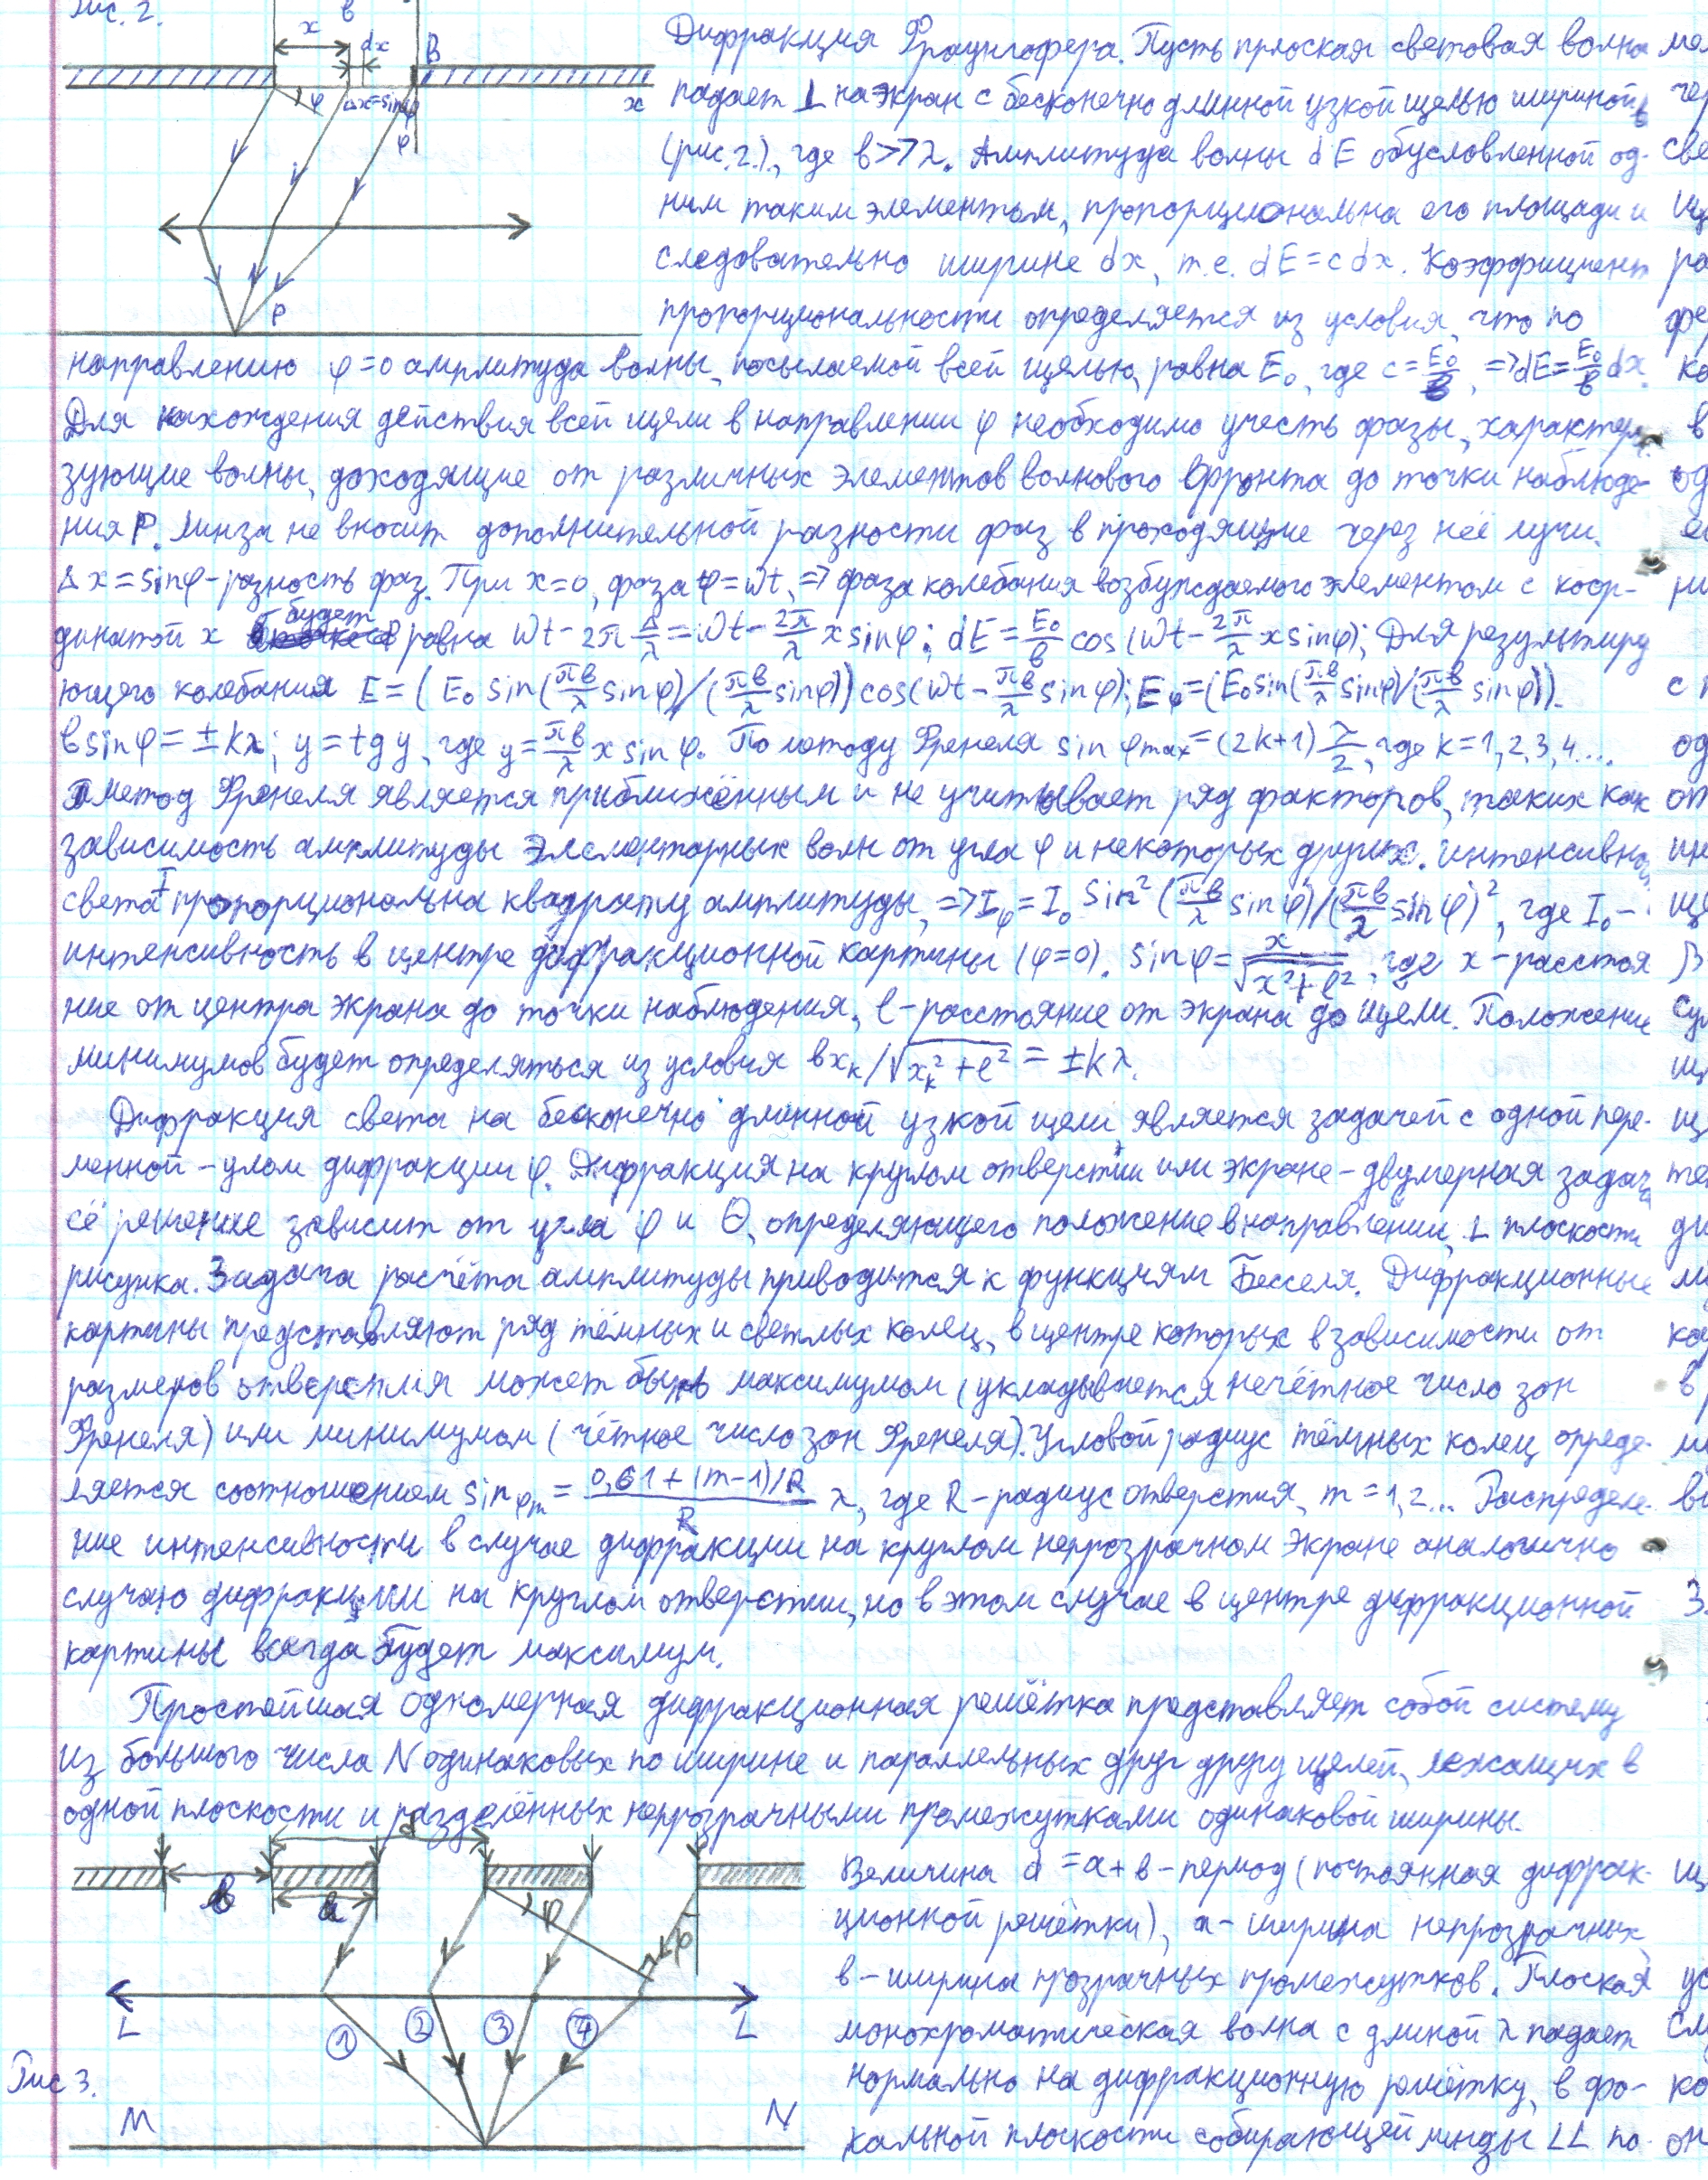 Рис. 2.
x
в
dx
B
φ
Δx=sinφ
φ
x
P
Дифракция Фраунгофера. Пусть прлоская световая волна
падает ⊥ на экран с бесконечно длинной узкой щелью шириной в
(рис.2.), где в>>λ. Амплитуда волны dE обусловленной од-
ним таким элементом, пропорциональна его площади и
следовательно ширине dx, т.е. dE=cdx. Коэффициент
пропорциональности определяется из условия, что по
направлению φ=0 амплитуда волны, посылаемой всей щелью, равна E₀, где c=E₀/в, =>dE=E₀/в dx.
Для нахождения действия всей щели в направлении φ необходимо учесть фазы, характери-
зующие волны, доходящие от различных элементов волнового фронта до точки наблюде-
ния P. Линза не вносит дополнительной разности фаз в проходящие через неё лучи.
Δx=sinφ-разность фаз. При x=0, фаза φ=Wt, => фаза колебания возбуждаемого элементом с коор-
динатой x будет равна Wt-2π Δ/λ=Wt-2π/λ x sinφ; dE=E₀/в cos(Wt-2π/λ x sinφ); Для результиру
ющего колебания E=(E₀ sin(πв/λ sinφ)/(πв/λ sinφ))cos(Wt-πв/λ sinφ); Eφ=(E₀sin(πв/λ sinφ)/(πв/λ sinφ)).
вsinφ=±kλ; y=tgy, где y=πв/λ x sinφ. По методу Френеля sinφmax=(2k+1)λ/2, где k=1,2,3,4....
метод Френеля является приближённым и не учитывает ряд факторов, таких как
зависимость амплитуды элементарных волн от угла φ и некоторых других. интенсивно
света I пропорциональна квадрату амплитуды, =>Iφ=I₀ sin²(πв/λ sinφ)/(πв/λ sinφ)², где I₀-
интенсивность в центре дифракционной картины (φ=0). sinφ=x/√x²+ℓ², где x-расстоя
ние от центра экрана до точки наблюдения, ℓ-расстояние от экрана до щели. Положение
минимумов будет определяться из условия вxₖ/√xₖ²+ℓ²=±kλ.
Дифракция света на бесконечно длинной узкой щели является задачей с одной пере-
менной-углом дифракции φ. Дифракция на круглом отверстии или экране-двумерная задача
её решение зависит от угла φ и Θ, определяющего положение в направлении, ⊥ плоскости
рисунка. Задача расчёта амплитуды приводится к функциям Бесселя. Дифракционные
картины представляют ряд тёмных и светлых колец, в центре которых в зависимости от
размеров отверстия может быть максимумом (укладывается нечётное число зон
Френеля) или минимумом (чётное число зон Френеля). Угловой радиус тёмных колец опреде-
ляется соотношением sinφm=0,61+(m-1)/R/R λ, где R-радиус отверстия, m=1,2... Распределе-
ние интенсивности в случае дифракции на круглом непрозрачном экране аналогично
случаю дифракции на круглом отверстии, но в этом случае в центре дифракционной
картины всегда будет максимум.
Простейшая одномерная дифракционная решётка представляет собой систему
из большого числа N одинаковых по ширине и параллельных друг другу щелей, лежащих в
одной плоскости и разделённых непрозрачными промежутками одинаковой ширины.
d
в
a
φ
φ
L
1
2
3
4
L
Рис 3.
M
N
Величина d=a+в-период (постоянная дифрак-
ционной решётки), a-ширина непрозрачных,
в-ширина прозрачных промежутков. Плоская
монохроматическая волна с длиной λ падает
нормально на дифракционную решётку, в фо-
кальной плоскости собирающей линзы LL по